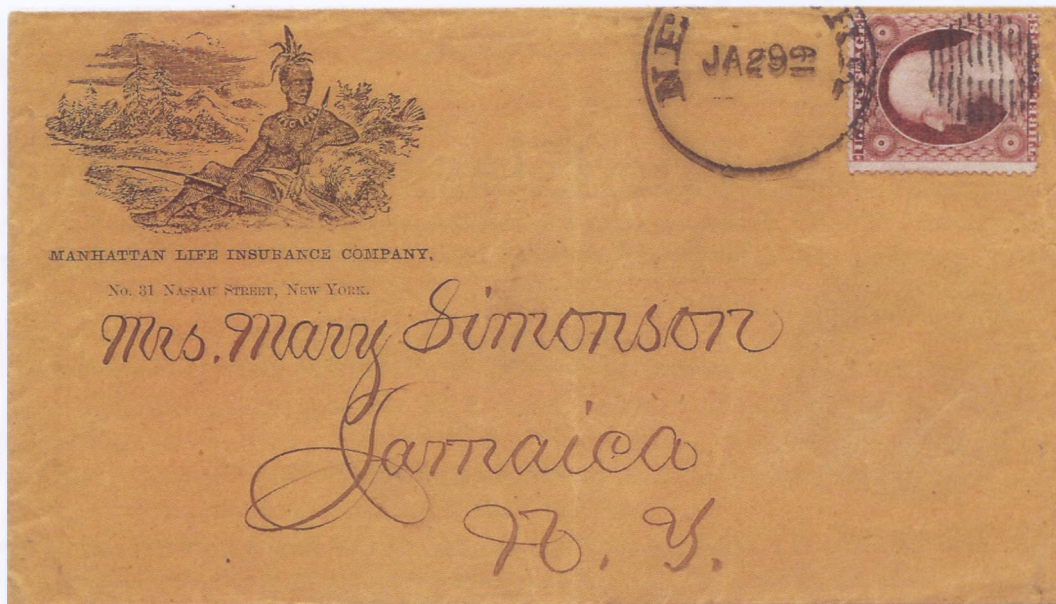 MANHATTAN LIFE INSURANCE COMPANY,
No. 31 NASSAU STREET, NEW YORK.
JA 29
Mrs. Mary Simonson
Jamaica
N. Y.